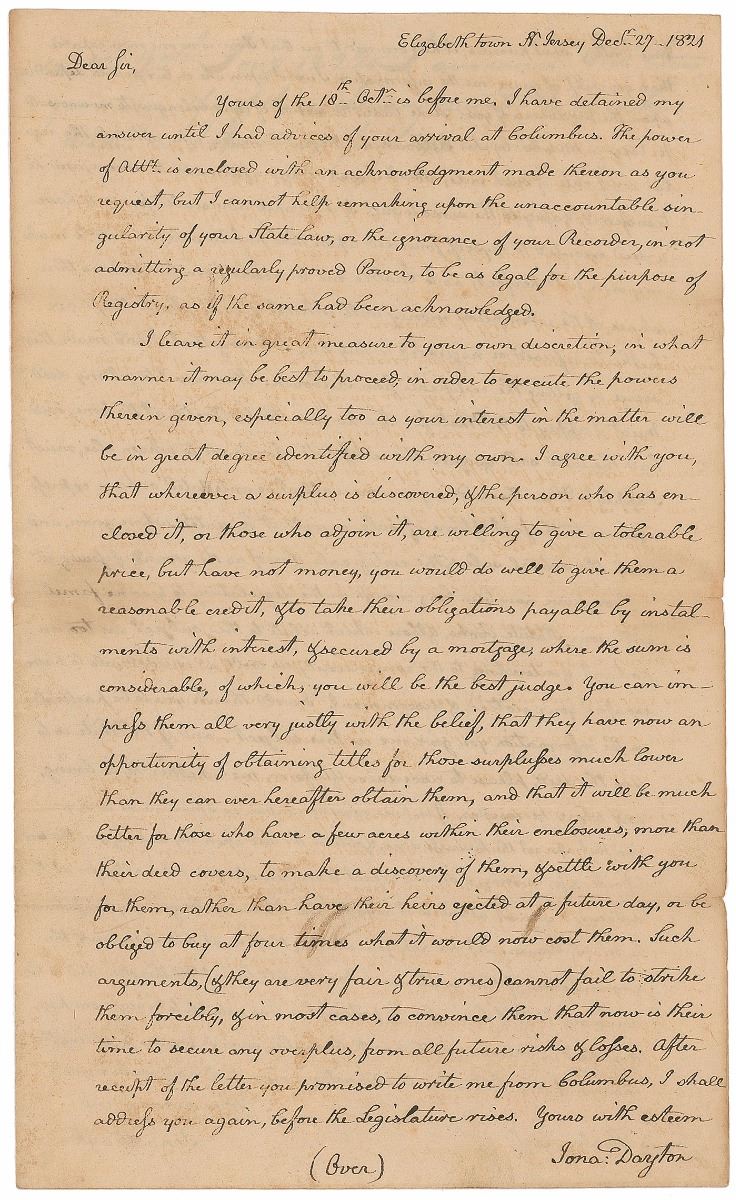 Elizabeth town N. Jersey Decr. 27 1821
Dear Sir,
Yours of the 18th Octr. is before me. I have detained my
answer until I had advices of your arrival at Columbus. The power
of Atty. is enclosed with an acknowledgment made thereon as you
request, but I cannot help remarking upon the unaccountable sin-
gularity of your State law, or the ignorance of your Recorder, in not
admitting a regularly proved Power, to be as legal for the purpose of
Registry, as if the same had been acknowledged.
I leave it in great measure to your own discretion, in what
manner it may be best to proceed, in order to execute the powers
therein given, especially too as your interest in the matter will
be in great degree identified with my own. I agree with you,
that whereever a surplus is discovered, & the person who has en-
closed it, or those who adjoin it, are willing to give a tolerable
price, but have not money, you would do well to give them a
reasonable credit, & to take their obligations payable by instal-
ments with interest, & secured by a mortgage, where the sum is
considerable, of which, you will be the best judge. You can im-
press them all very justly with the belief, that they have now an
opportunity of obtaining titles for those surplusses much lower
than they can ever hereafter obtain them, and that it will be much
better for those who have a few acres within their enclosures, more than
their deed covers, to make a discovery of them, & settle with you
for them, rather than have their heirs ejected at a future day, or be
obliged to buy at four times what it would now cost them. Such
arguments, (& they are very fair & true ones) cannot fail to strike
them forcibly, & in most cases, to convince them that now is their
time to secure any overplus, from all future risks & losses. After
receipt of the letter you promised to write me from Columbus, I shall
address you again, before the Legislature rises. Yours with esteem
Jona: Dayton
(Over)